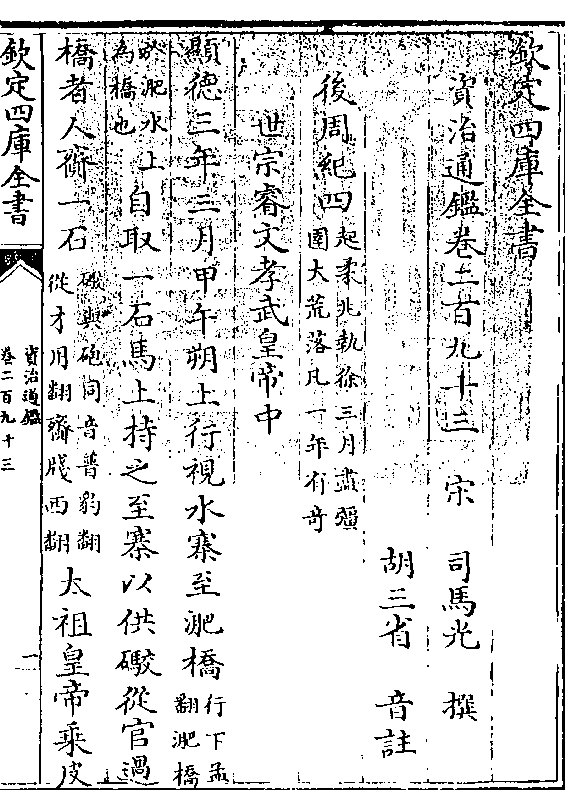 欽定四庫全書
資治通鑑卷二百九十三　宋　司馬光　撰
胡三省　音註
後周紀四起柔兆執徐三月盡彊圉大荒落凡一年有奇
世宗睿文孝武皇帝中
顯德三年三月甲午朔上行視水寨至淝橋行下孟翻淝橋
跨淝水為橋也上自取一石馬上持之至寨以供礮從官過
橋者人齎一石礮與砲同音普豹翻從才用翻齎牋西翻太祖皇帝乗皮
欽定四庫全書
資治通鑑
卷二百九十三
一